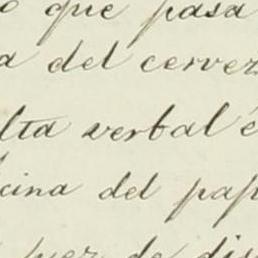 o que pasa
a del cervez
lta verbal é
cina del pap
juez de dis